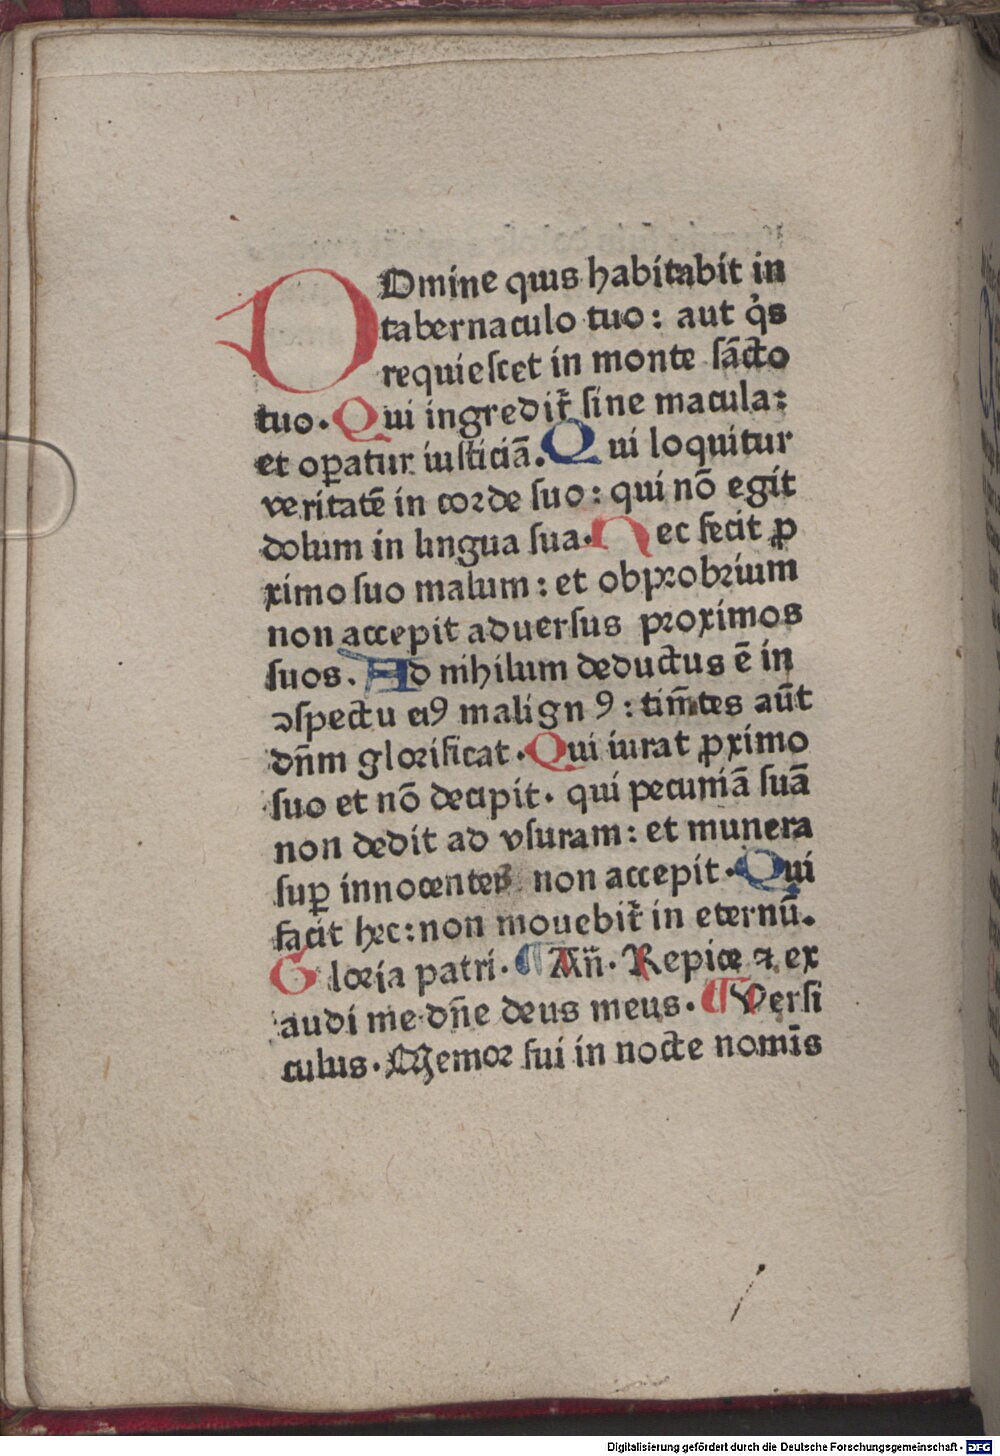 DOmine quis habitabit in
tabernaculo tuo: aut q̇s
requiescet in monte sācto
tuo. Qui ingredit᷑ sine macula:
et oꝑatur iusticiā. Qui loquitur
veritatē in corde suo: qui nō egit
dolum in lingua sua. Nec fecit ꝓ
ximo suo malum: et obprobrium
non accepit aduersus proximos
suos. Ad nihilum deductus ē in
ↄspectu eiꝰ malignꝰ: tim̄tes aūt
dn̄m glorificat. Qui iurat ꝓximo
suo et nō decipit. qui pecuniā suā
non dedit ad vsuram: et munera
suꝑ innocentes non accepit. Qui
facit hec: non mouebit᷑ in eternū.
Gloria patri. ¶ An̄. Repice ⁊ ex
audi me dn̄e deus meus. ¶ Versi
culus. Memor fui in nocte nomīs
Digitalisierung gefördert durch die Deutsche Forschungsgemeinschaft - DFG